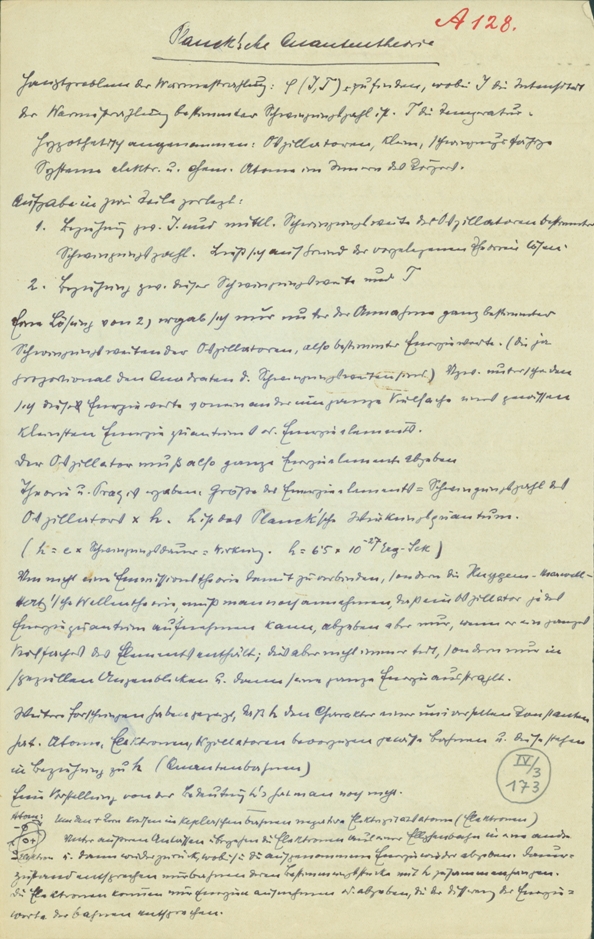 A 128.
Planck'sche Quantentheorie
Hauptproblem der Wärmestrahlung: φ(J,T) zu finden, wobei J die Intensität
der Wärmestrahlung bestimmter Schwingungszahl ist. T die Temperatur.
Hypothetisch angenommen: Oszillatoren, kleine, schwingungsfähige
Systeme elektr. u. chem. Atome im Innern des Körpers.
Aufgabe in zwei Teile zerlegt:
1. Beziehung zw. J. und mittl. Schwingungsweite der Oszillatoren bestimmter
Schwingungszahl. Lässt sich auf Grund der Theorie lösen.
2. Beziehung zw. dieser Schwingungsweite und T
Eine Lösung von 2) ergab sich nur unter der Annahme ganz bestimmter
Schwingungsweiten der Oszillatoren, also bestimmter Energiewerte. (die ja
proportional den Quadraten d. Schwingungsweiten sind.) Und zwar unterscheiden
sich diese Energiewerte voneinander um ganze Vielfache eines gewissen
kleinsten Energiequantums od. Energieelements.
Der Oszillator muß also ganze Energieelemente abgeben
Theorie u. Praxis ergaben: Größe des Energieelements = Schwingungszahl des
Oszillators x h. h ist das Planck'sche Wirkungsquantum.
(h = e x Schwingungsdauer = Wirkung. h = 6.5 x 10^-27 Erg-Sek)
Um nicht eine Emissionstheorie damit zu verbinden, sondern die Huygens-Maxwell-
Hertz'sche Wellentheorie, muß man noch annehmen, daß ein Oszillator jedes
Energiequantum aufnehmen kann, abgeben aber nur, wenn er ein ganzes
Vielfaches des Elements enthält; dies aber nicht immer tut, sondern nur in
speziellen Augenblicken u. dann seine ganze Energie ausstrahlt.
Weitere Forschungen haben gezeigt, daß h den Charakter einer universellen Konstanten
hat. Atome, Elektronen, Oszillatoren bevorzugen gewisse Bahnen u. diese stehen
in Beziehung zu h (Quantenbahnen)
Eine Vorstellung von der Bedeutung h's hat man noch nicht.
IV/3
173
Atom: Um den Kern kreisen in Keplerschen Bahnen negative Elektrizitätsatome (Elektronen)
Unter äusseren Anlässen übergehen die Elektronen aus einer Ellipsenbahn in eine andere
u. dann wieder zurück, wobei sie die aufgenommene Energie wieder abgeben. Dauer-
zustand entsprechen nur Bahnen deren Bestimmungsstücke mit h zusammenhängen.
Die Elektronen können nur Energie aufnehmen od. abgeben, die der Differenz der Energie-
werte der Bahnen entsprechen.